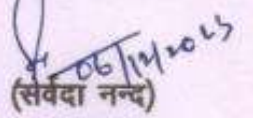 06/12/2023
(सर्वदा नन्द)